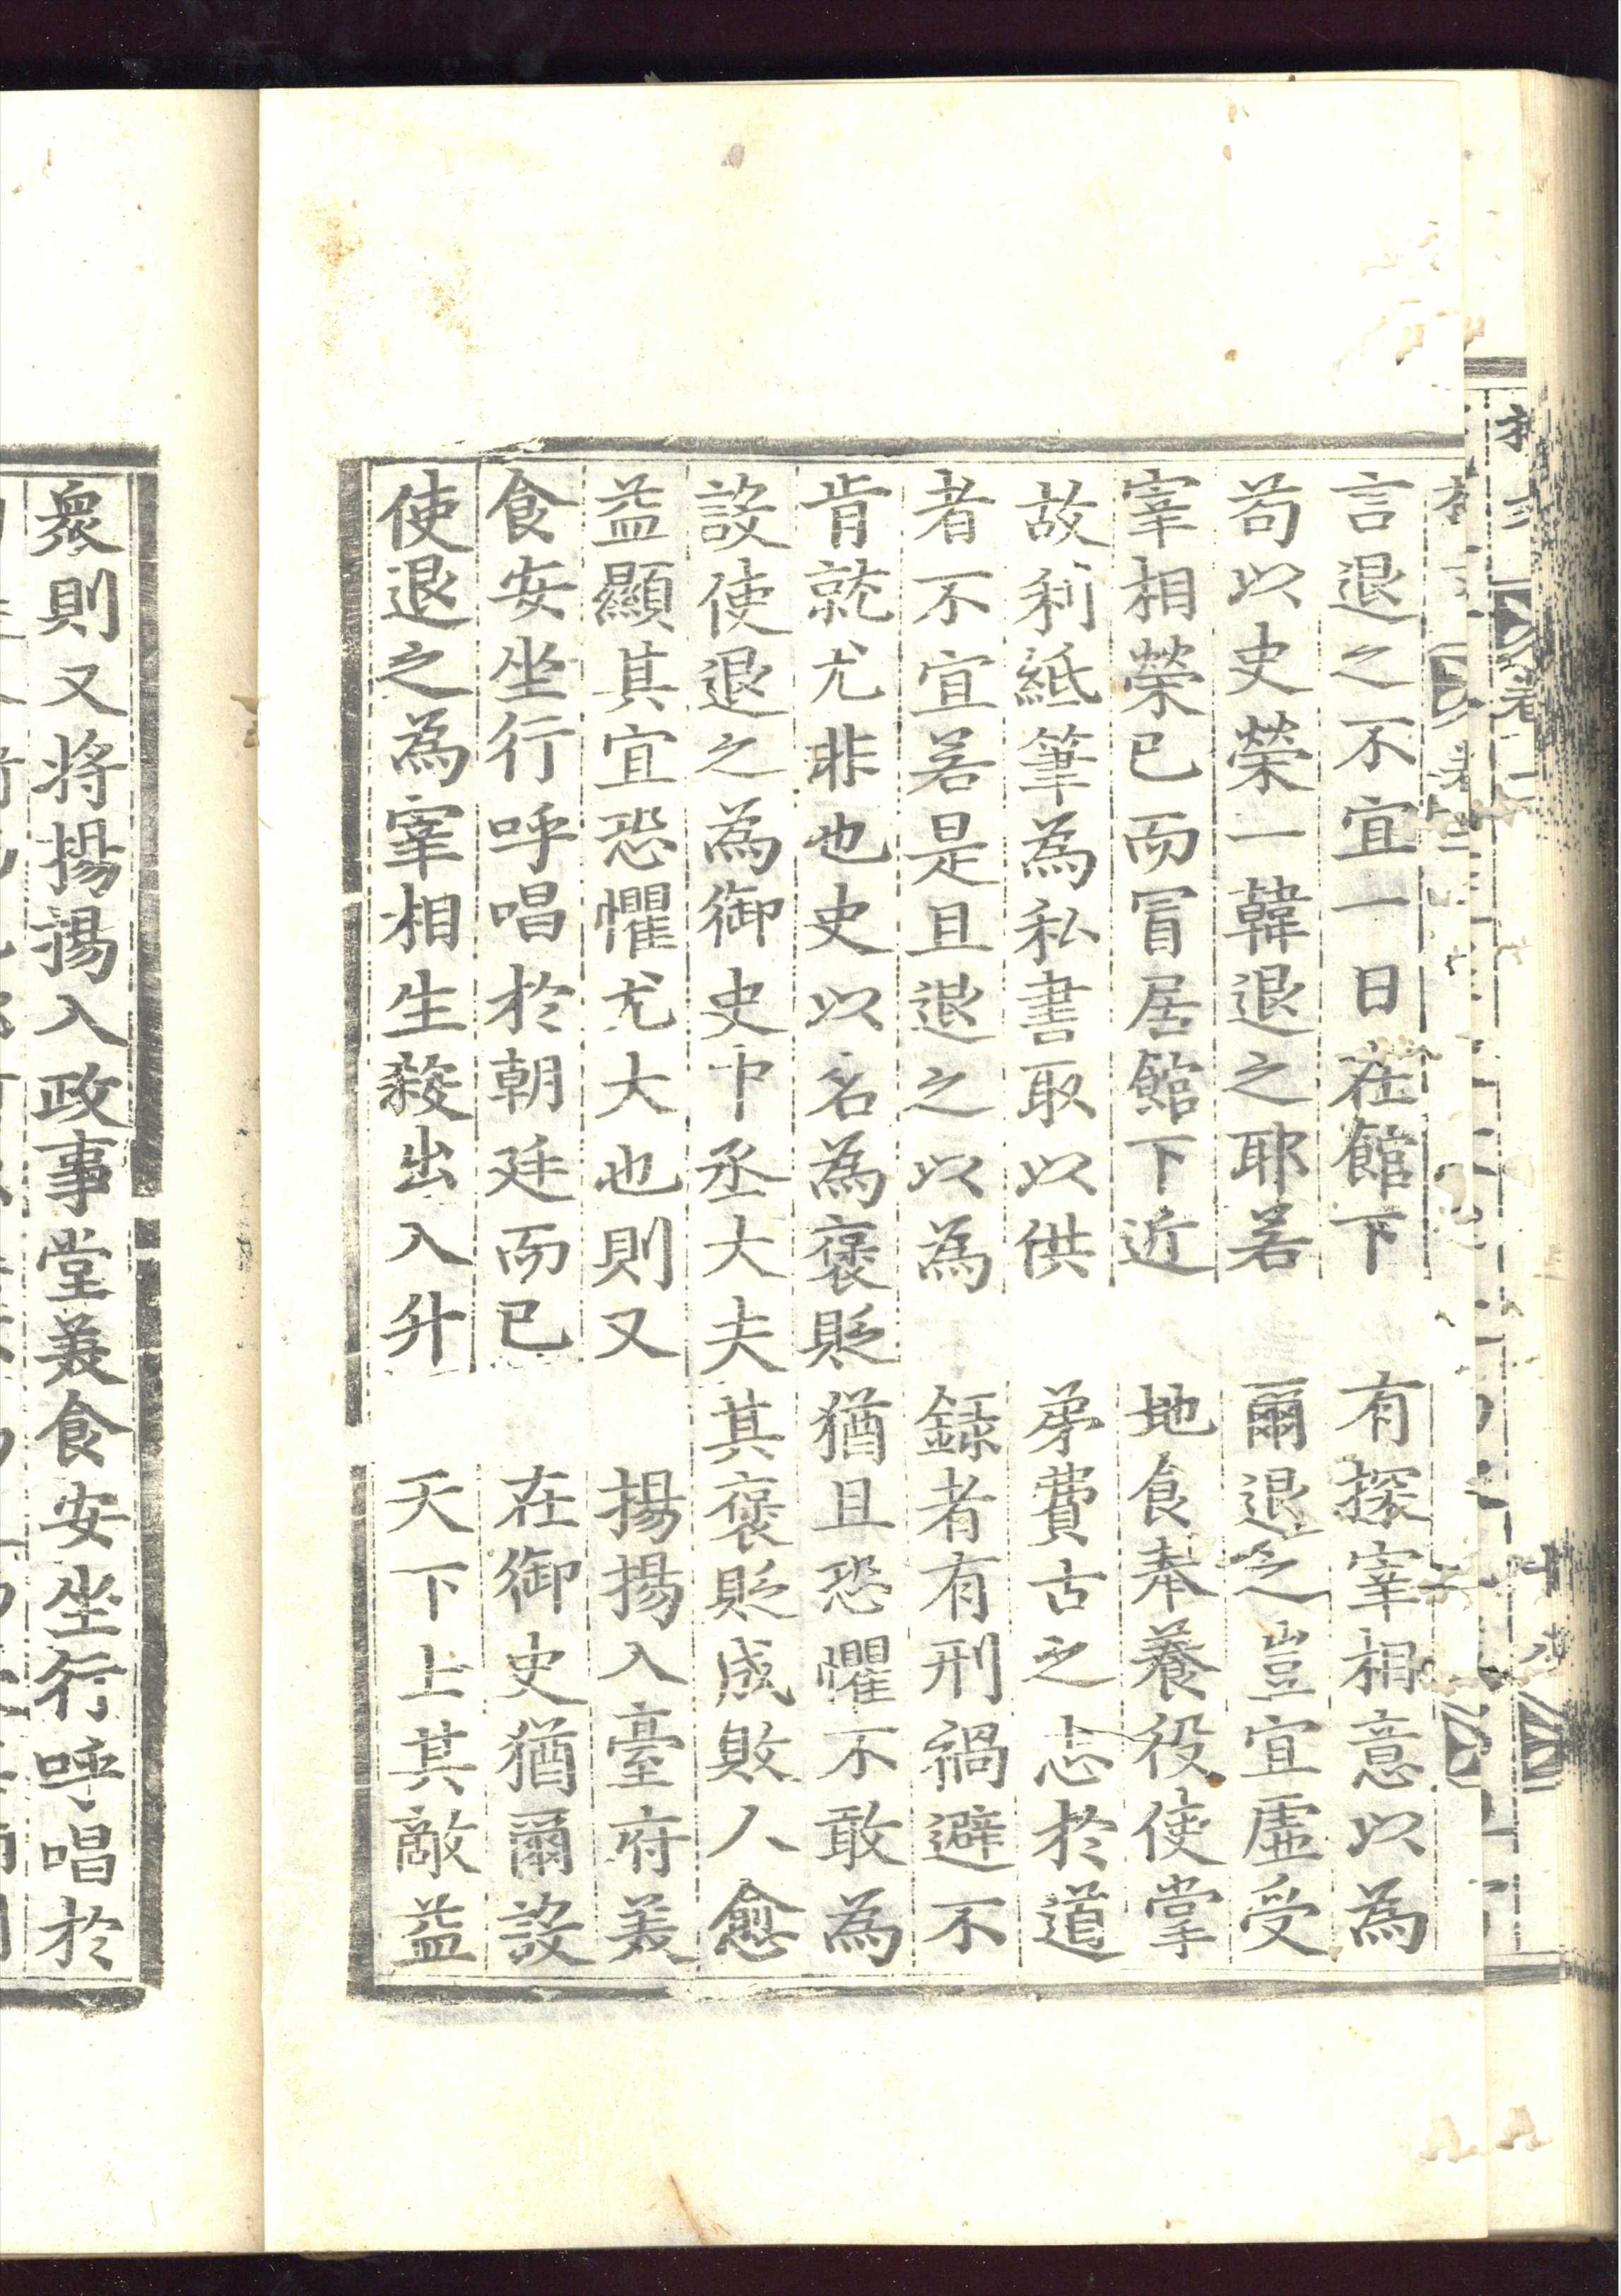 言退之不宜一日在館下有探宰相意以為
苟以史榮一韓退之耶若爾退之豈宜虛受
宰相榮已而冒居館下近地食奉養役使掌
故利紙筆為私書取以供弟費古之志於道
者不宜若是且退之以為錄者有刑禍避不
肯就尤非也史以名為褒貶猶且恐懼不敢為
設使退之為御史中丞大夫其褒貶成敗人愈
益顯其宜恐懼尤大也則又揚揚入臺府美
食安坐行呼唱於朝廷而已在御史猶爾設
使退之為宰相生殺出入升天下上其敵益
衆則又將揚揚入政事堂美食安坐行呼唱於